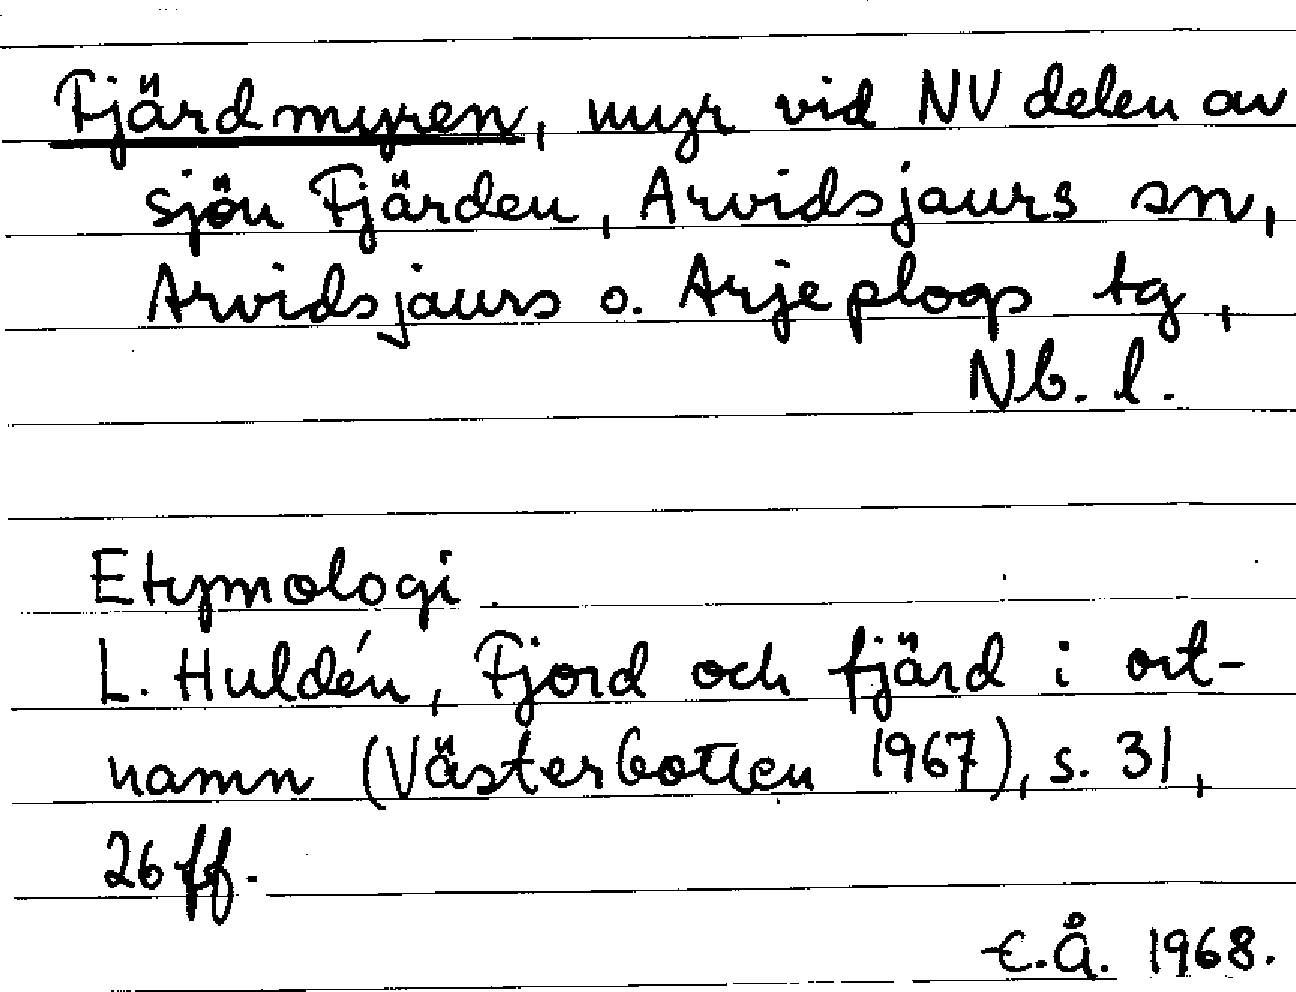 Fjärdmyren, myr vid NV delen av
sjön Fjärden, Arvidsjaurs sn,
Arvidsjaurs o. Arjeplogs tg,
Nb. l.
Etymologi
L. Huldén, Fjord och fjärd i ort-
namn (Västerbotten 1967), s. 31,
26 ff.
E.Å. 1968.